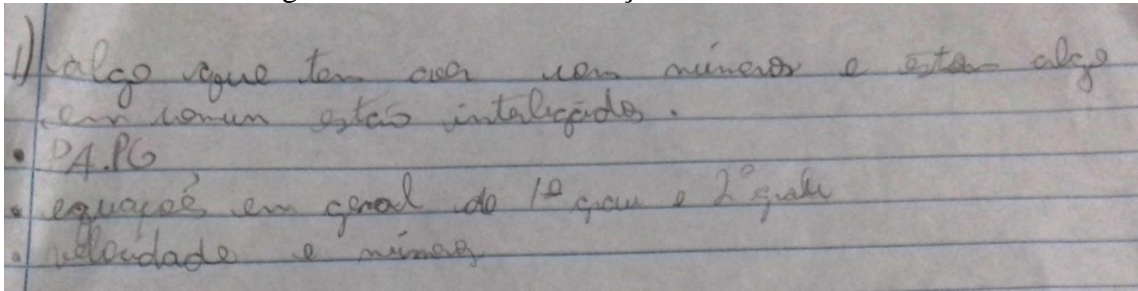 1) algo que tem aver com números e estem algo
em comun estão intaligados.
• PA.PG
• equações em geral do 1º grau e 2º grau
• velocidade e números